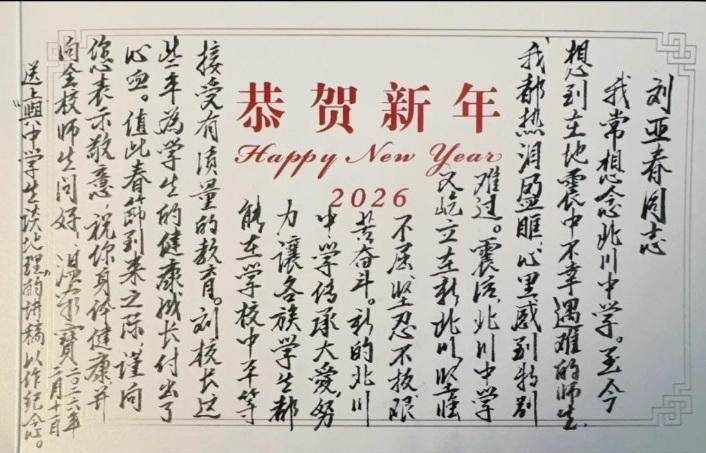 恭贺新年
Happy New Year
2026
刘亚春同志
我常想念北川中学。至今
想到在地震中不幸遇难的师生，
我都热泪盈眶，心里感到特别
难过。震后，北川中学
又屹立在新北川，坚强
不屈，坚忍不拔，艰
苦奋斗。新的北川
中学传承大爱，努
力让各族学生都
能在学校中平等
接受有质量的教育。刘校长这
些年为学生的健康成长付出了
心血。值此春节到来之际，谨向
您表示敬意，祝你身体健康，并
向全校师生问好。温家宝 二〇二六年
二月十日
送上《与中学生谈地理》的讲稿，以作纪念。